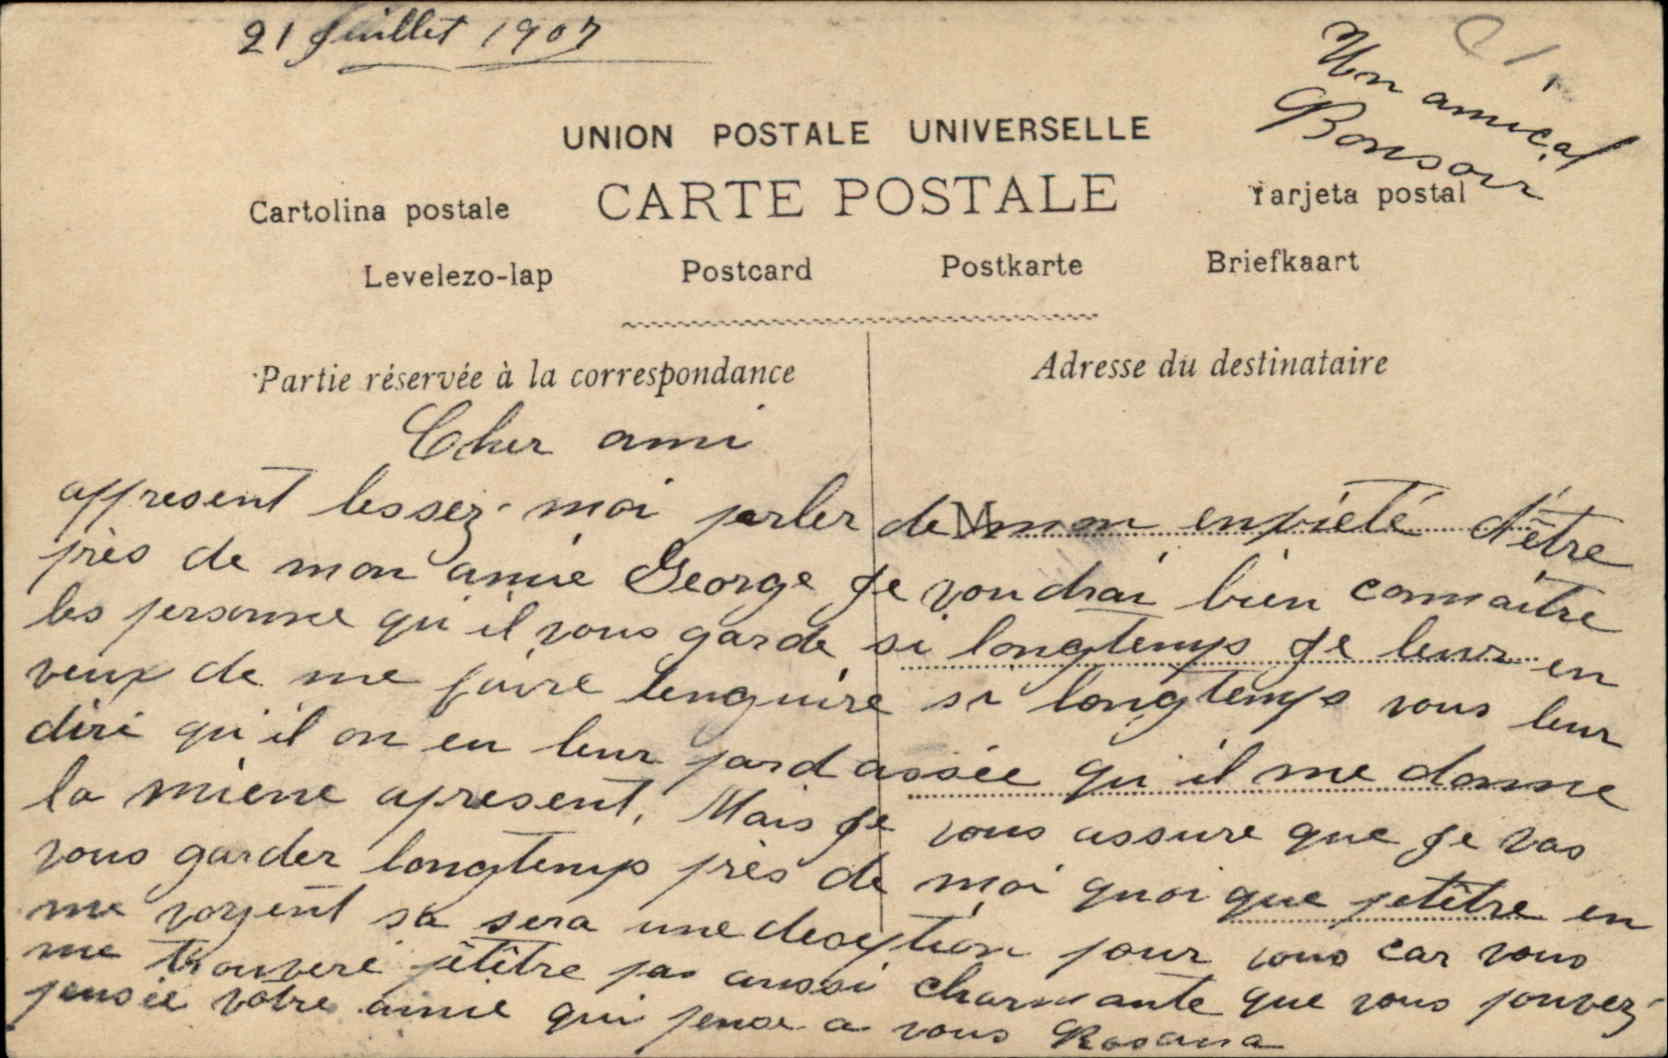 21 Juillet 1907
Un amical
Bonsoir
UNION POSTALE UNIVERSELLE
Cartolina postale CARTE POSTALE Tarjeta postal
Levelezo-lap Postcard Postkarte Briefkaart
Partie réservée à la correspondance Adresse du destinataire
Cher ami
appresent lessez-moi parler de mon enxieté d'être
près de mon amie George Je voudrai bien connaitre
les personne qu'il vous garde si longtemps Je leur en
veux de me faire lenguire si longtemps vous leur
diré qu'il on eu leur pard assée qu'il me donne
la miene apresent. Mais Je vous assure que Je vas
vous garder longtemps près de moi quoi que petêtre en
me voyent sa sera une deseption pour vous car vous
me trouveré pêtêtre pas aussi charmante que vous pouvez-
pensée votre amie qui pense a vous Rosana